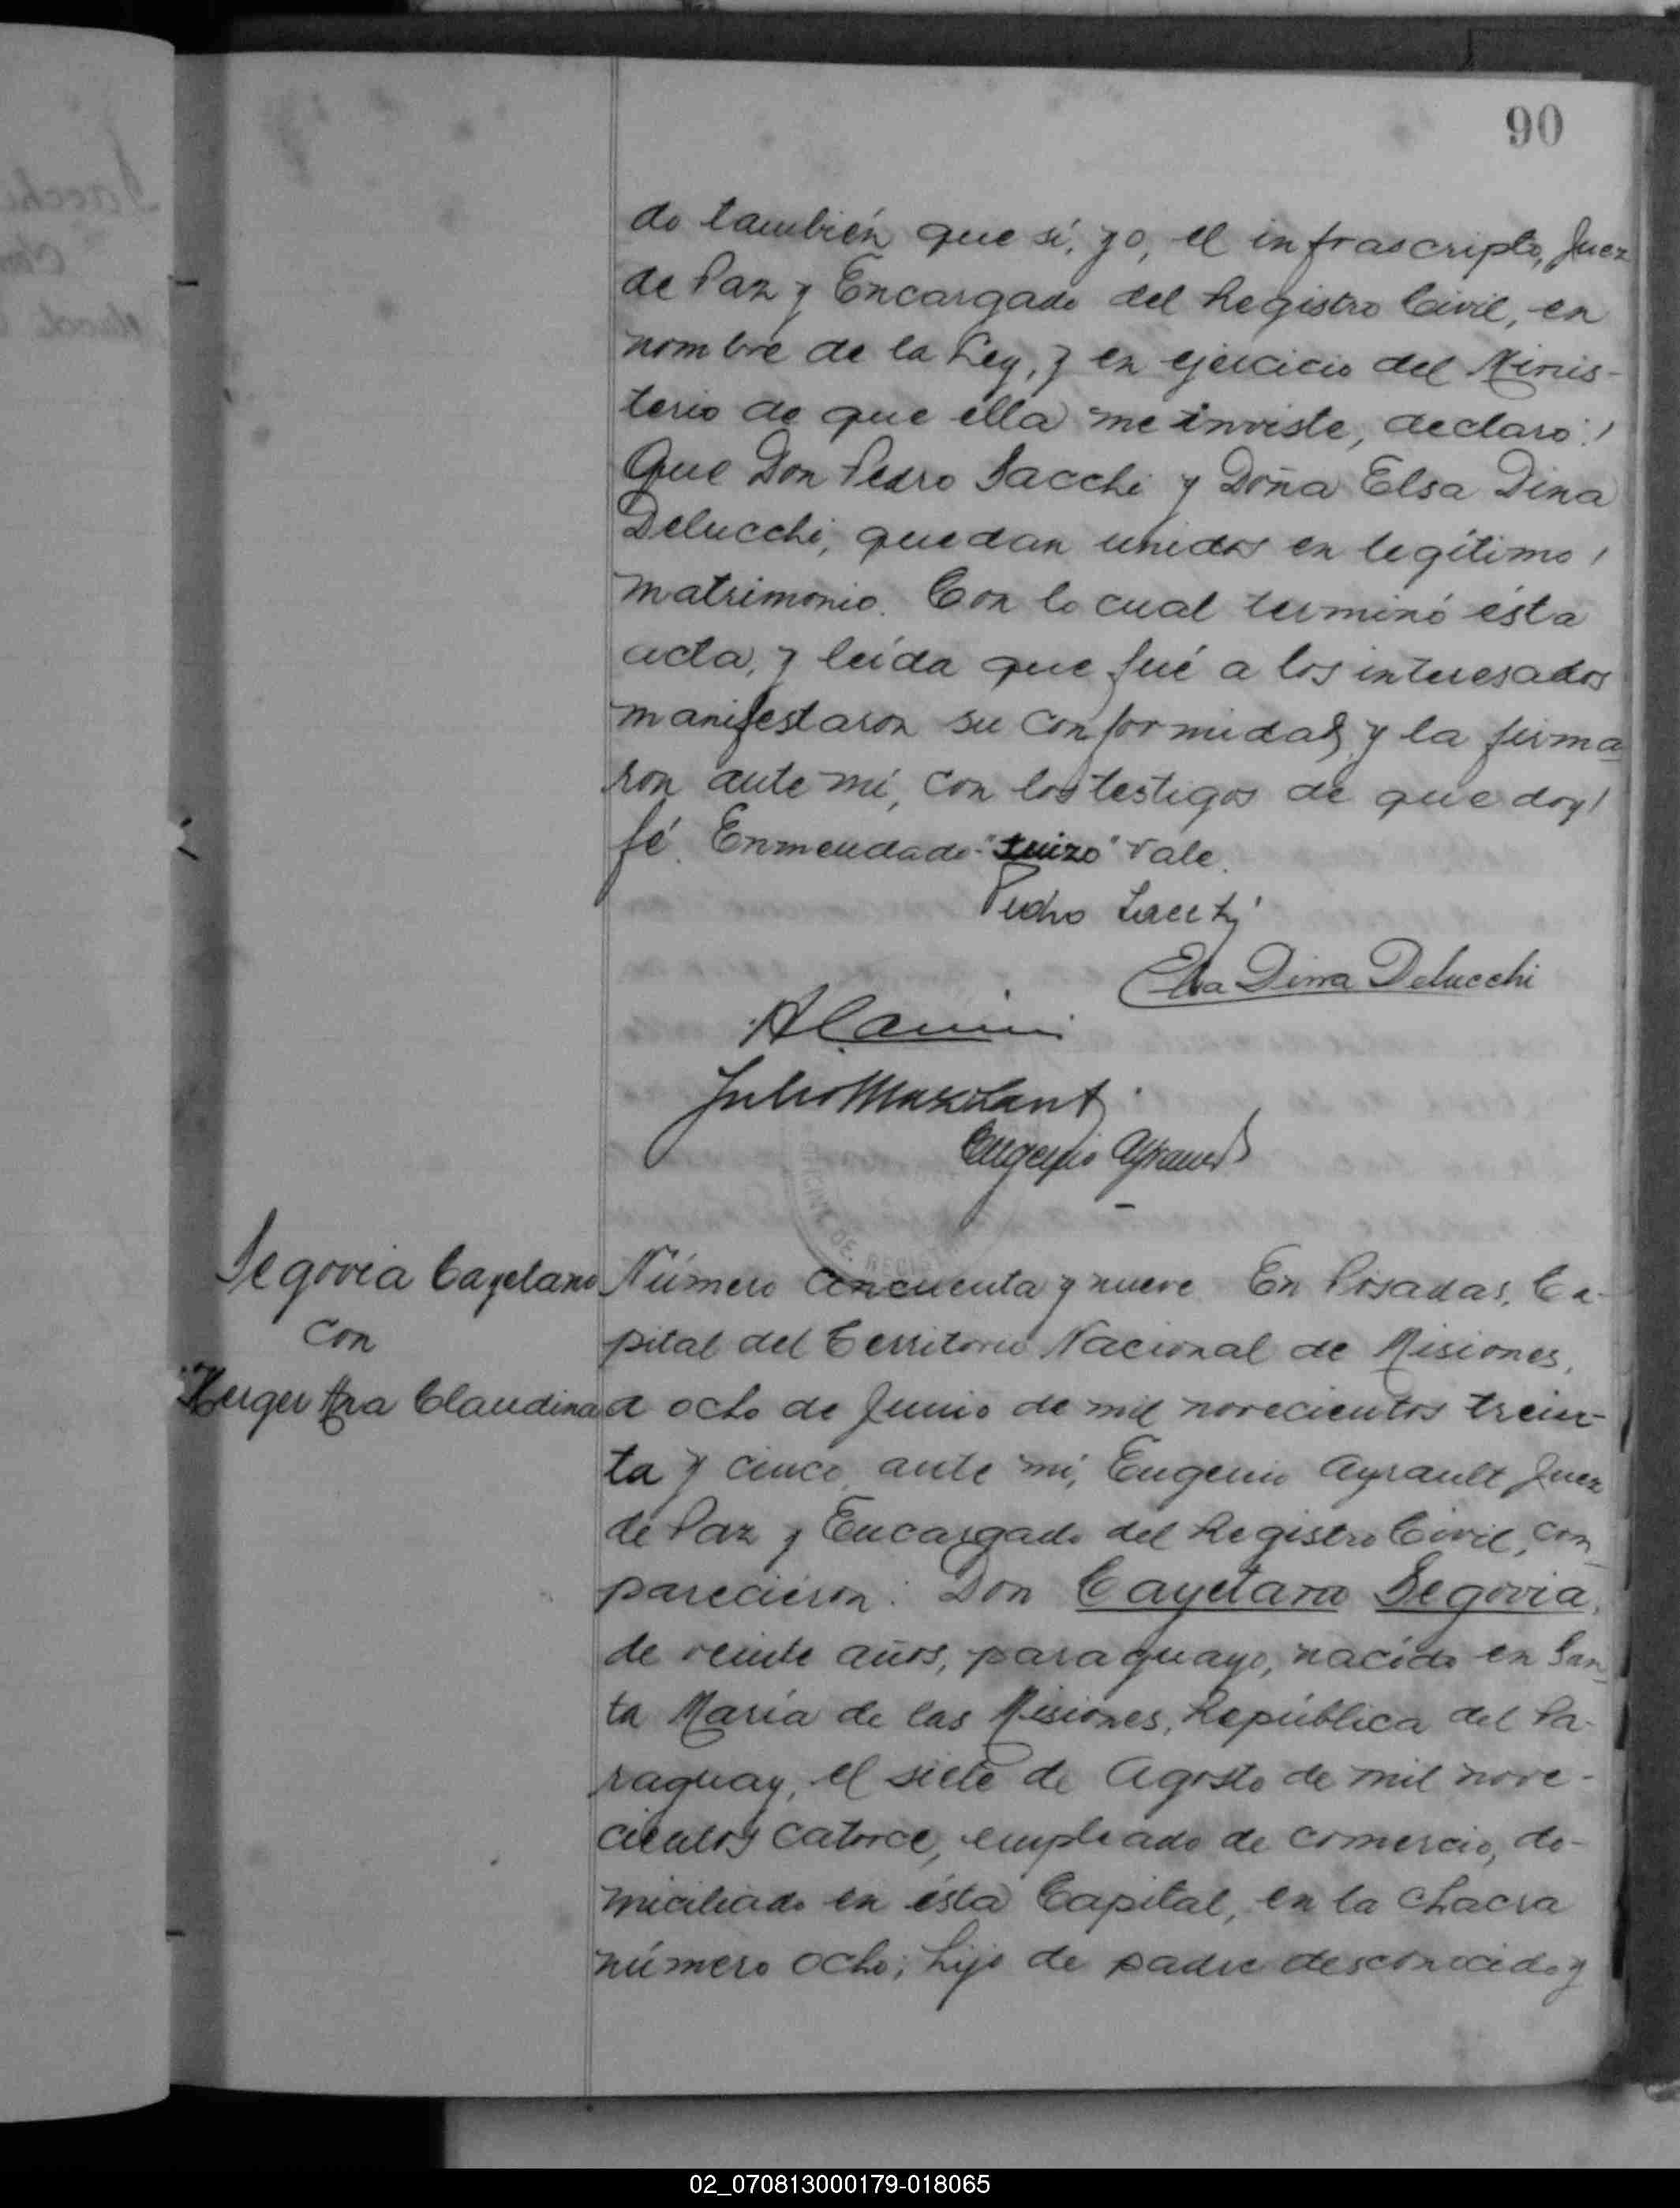 90
do también que sí, yo, el infrascripto, Juez
de Paz y Encargado del Registro Civil, en
nombre de la Ley, y en ejercicio del Minis-
terio de que ella me inviste, declaro:
Que Don Pedro Sacchi y Doña Elsa Dina
Delucchi, quedan unidos en legítimo
matrimonio. Con lo cual terminó ésta
acta, y leída que fué a los interesados
manifestaron su conformidad, y la firma
ron ante mí, con los testigos de que doy
fé. Enmendado-"suizo" Vale.
Pedro Sacchi
Elsa Dina Delucchi
Julio
Eugenio Ayrault
Segovia Cayetano
con
Ana Claudina
Número cincuenta y nueve En Posadas, Ca-
pital del Territorio Nacional de Misiones,
a ocho de Junio de mil novecientos trein-
ta y cinco, ante mí, Eugenio Ayrault Juez
de Paz y Encargado del Registro Civil, com
parecieron: Don Cayetano Segovia,
de veinte años, paraguayo, nacido en San
ta María de las Misiones, República del Pa-
raguay, el siete de Agosto de mil nove-
cientos catorce, empleado de comercio, do-
miciliado en ésta Capital, en la chacra
número ocho; hijo de padre desconocido y
02_070813000179-018065